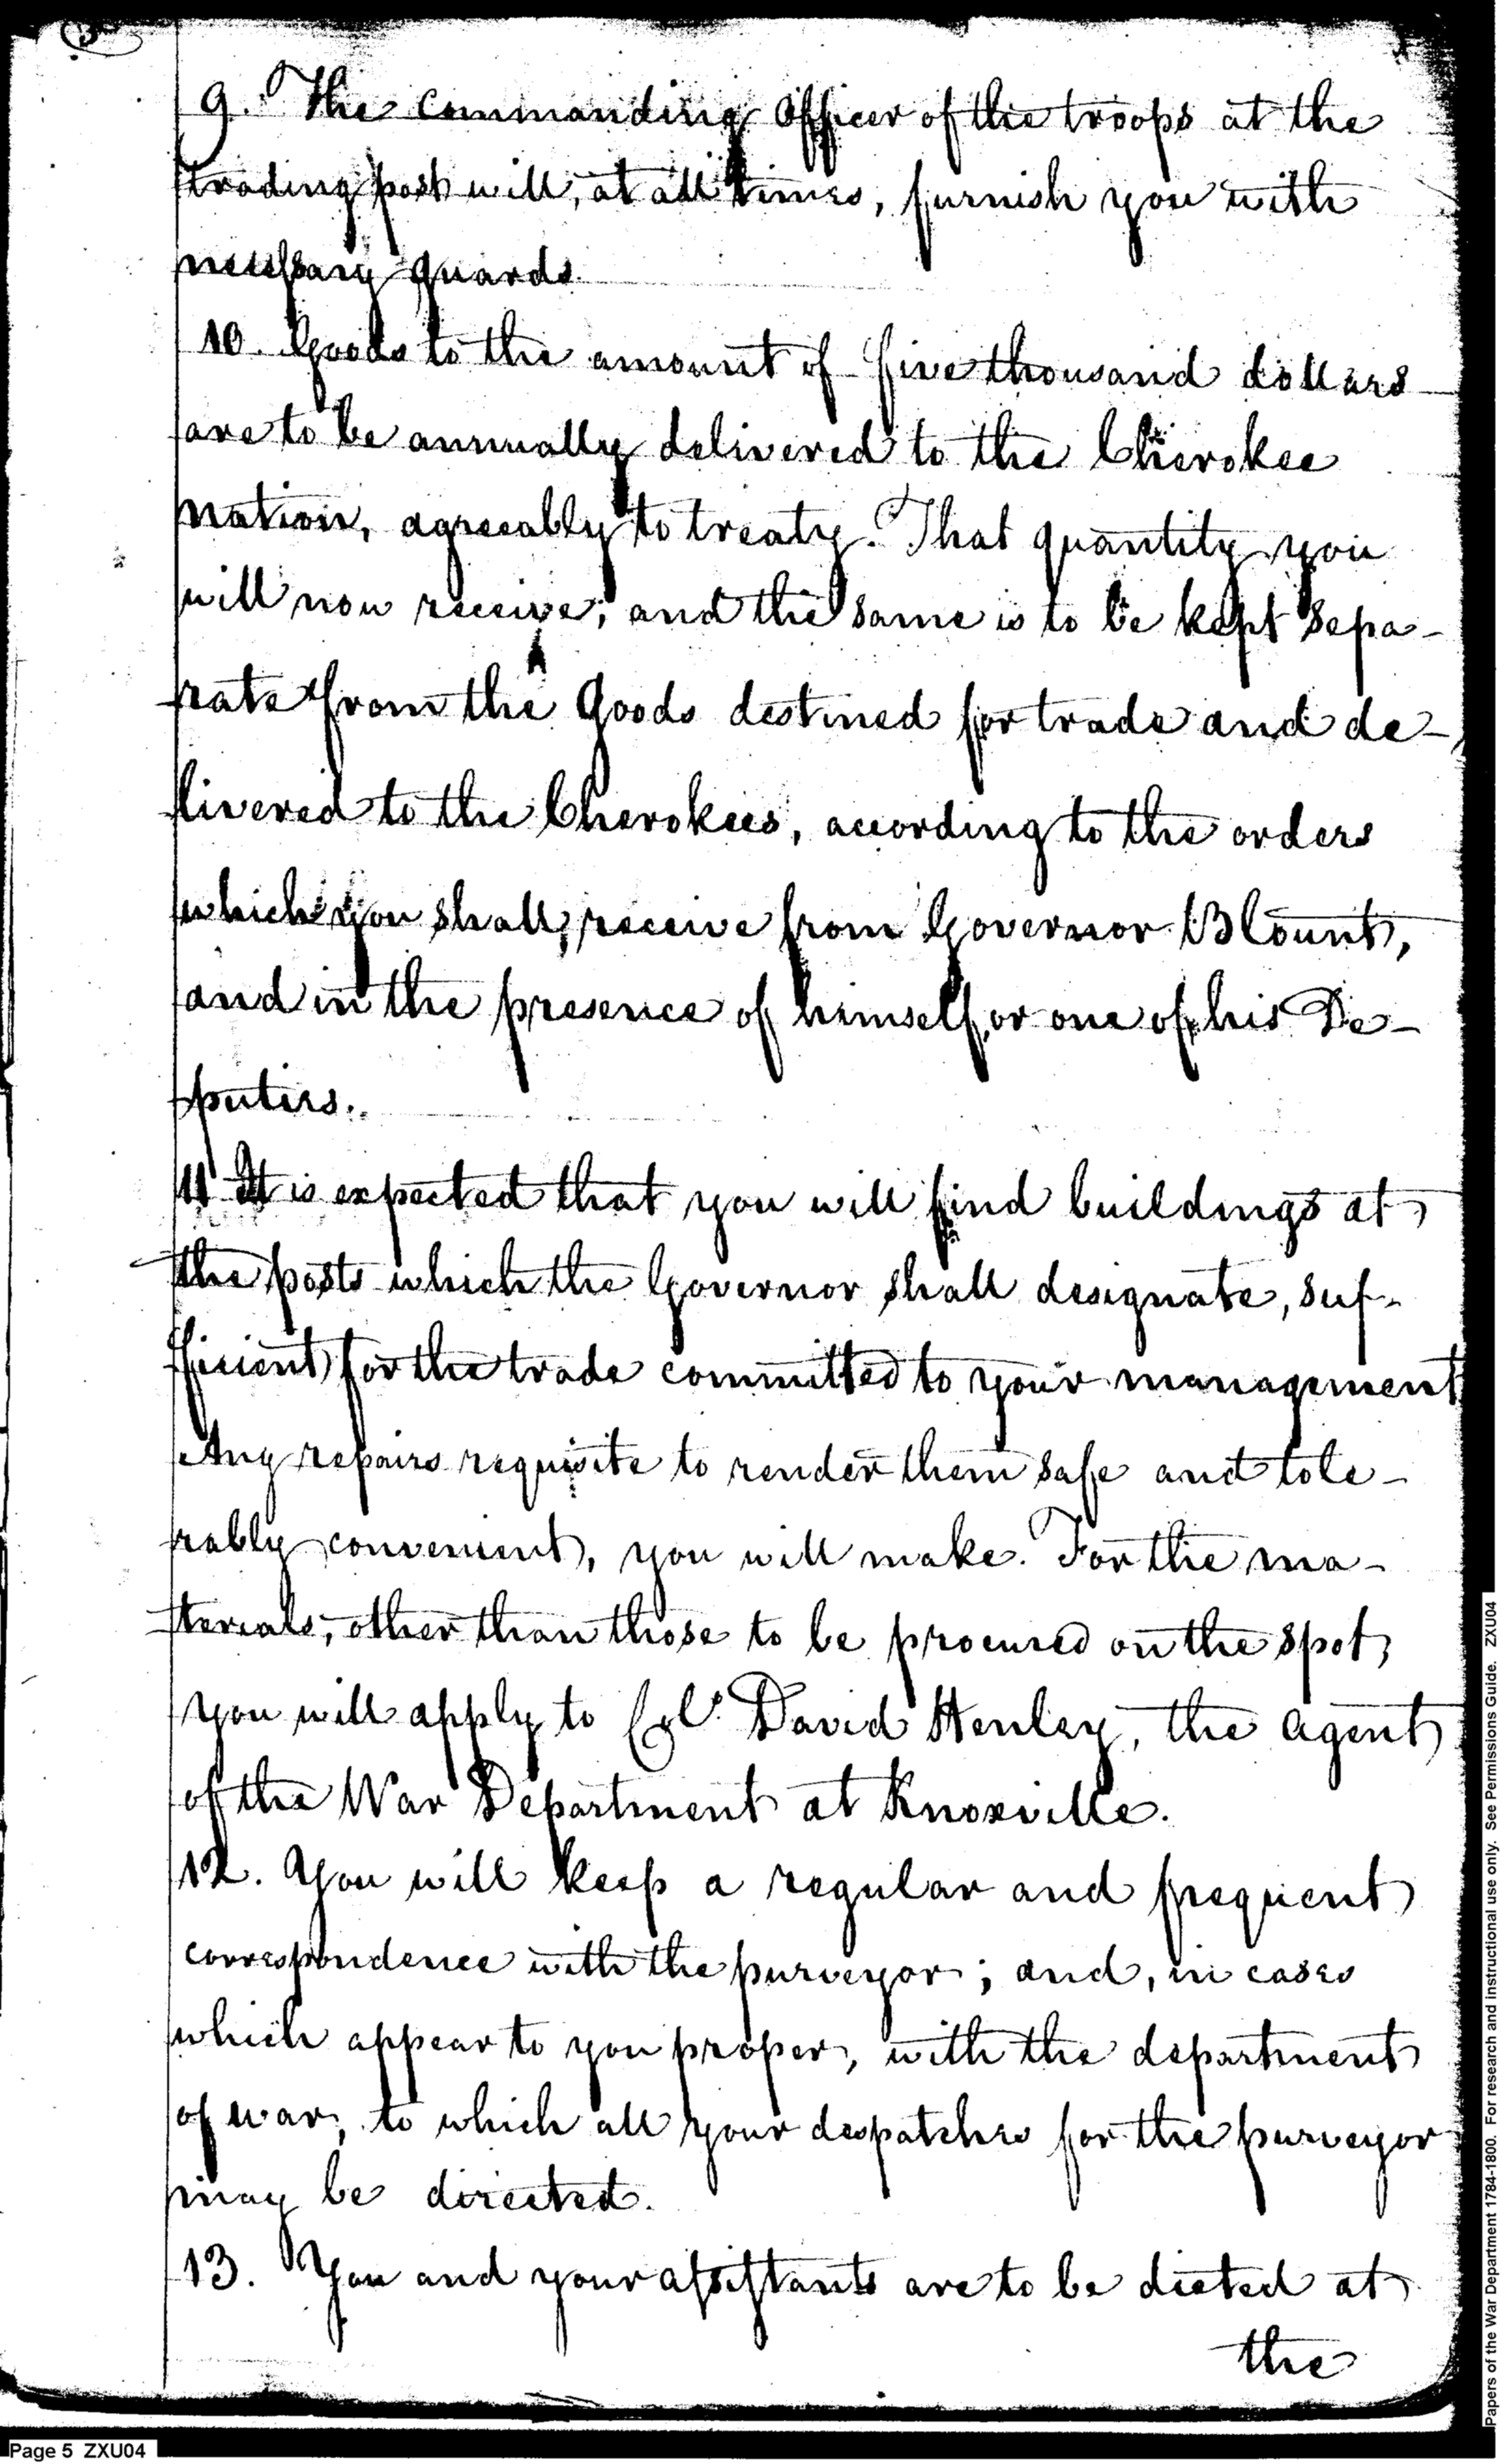 9. The commanding Officer of the troops at the
trading post will, at all times, furnish you with
necessary guards.
10. Goods to the amount of five thousand dollars
are to be annually delivered to the Cherokee
nation, agreeably to treaty. That quantity you
will now receive; and the same is to be kept sepa-
rate from the Goods destined for trade and de-
livered to the Cherokees, according to the orders
which you shall receive from Governor Blount,
and in the presence of himself, or one of his De-
puties.
11 It is expected that you will find buildings at
the posts which the Governor shall designate, suf-
ficient for the trade committed to your management
Any repairs requisite to render them safe and tole-
rably convenient, you will make. For the ma-
terials, other than those to be procured on the spot,
you will apply to Col. David Henley, the agent
of the War Department at Knoxville.
12. You will keep a regular and frequent
correspondence with the purveyor; and, in cases
which appear to you proper, with the department
of war, to which all your despatches for the purveyor
may be directed.
13. You and your assistants are to be dieted at
the
Page 5 ZXU04
Papers of the War Department 1784-1800. For research and instructional use only. See Permissions Guide. ZXU04